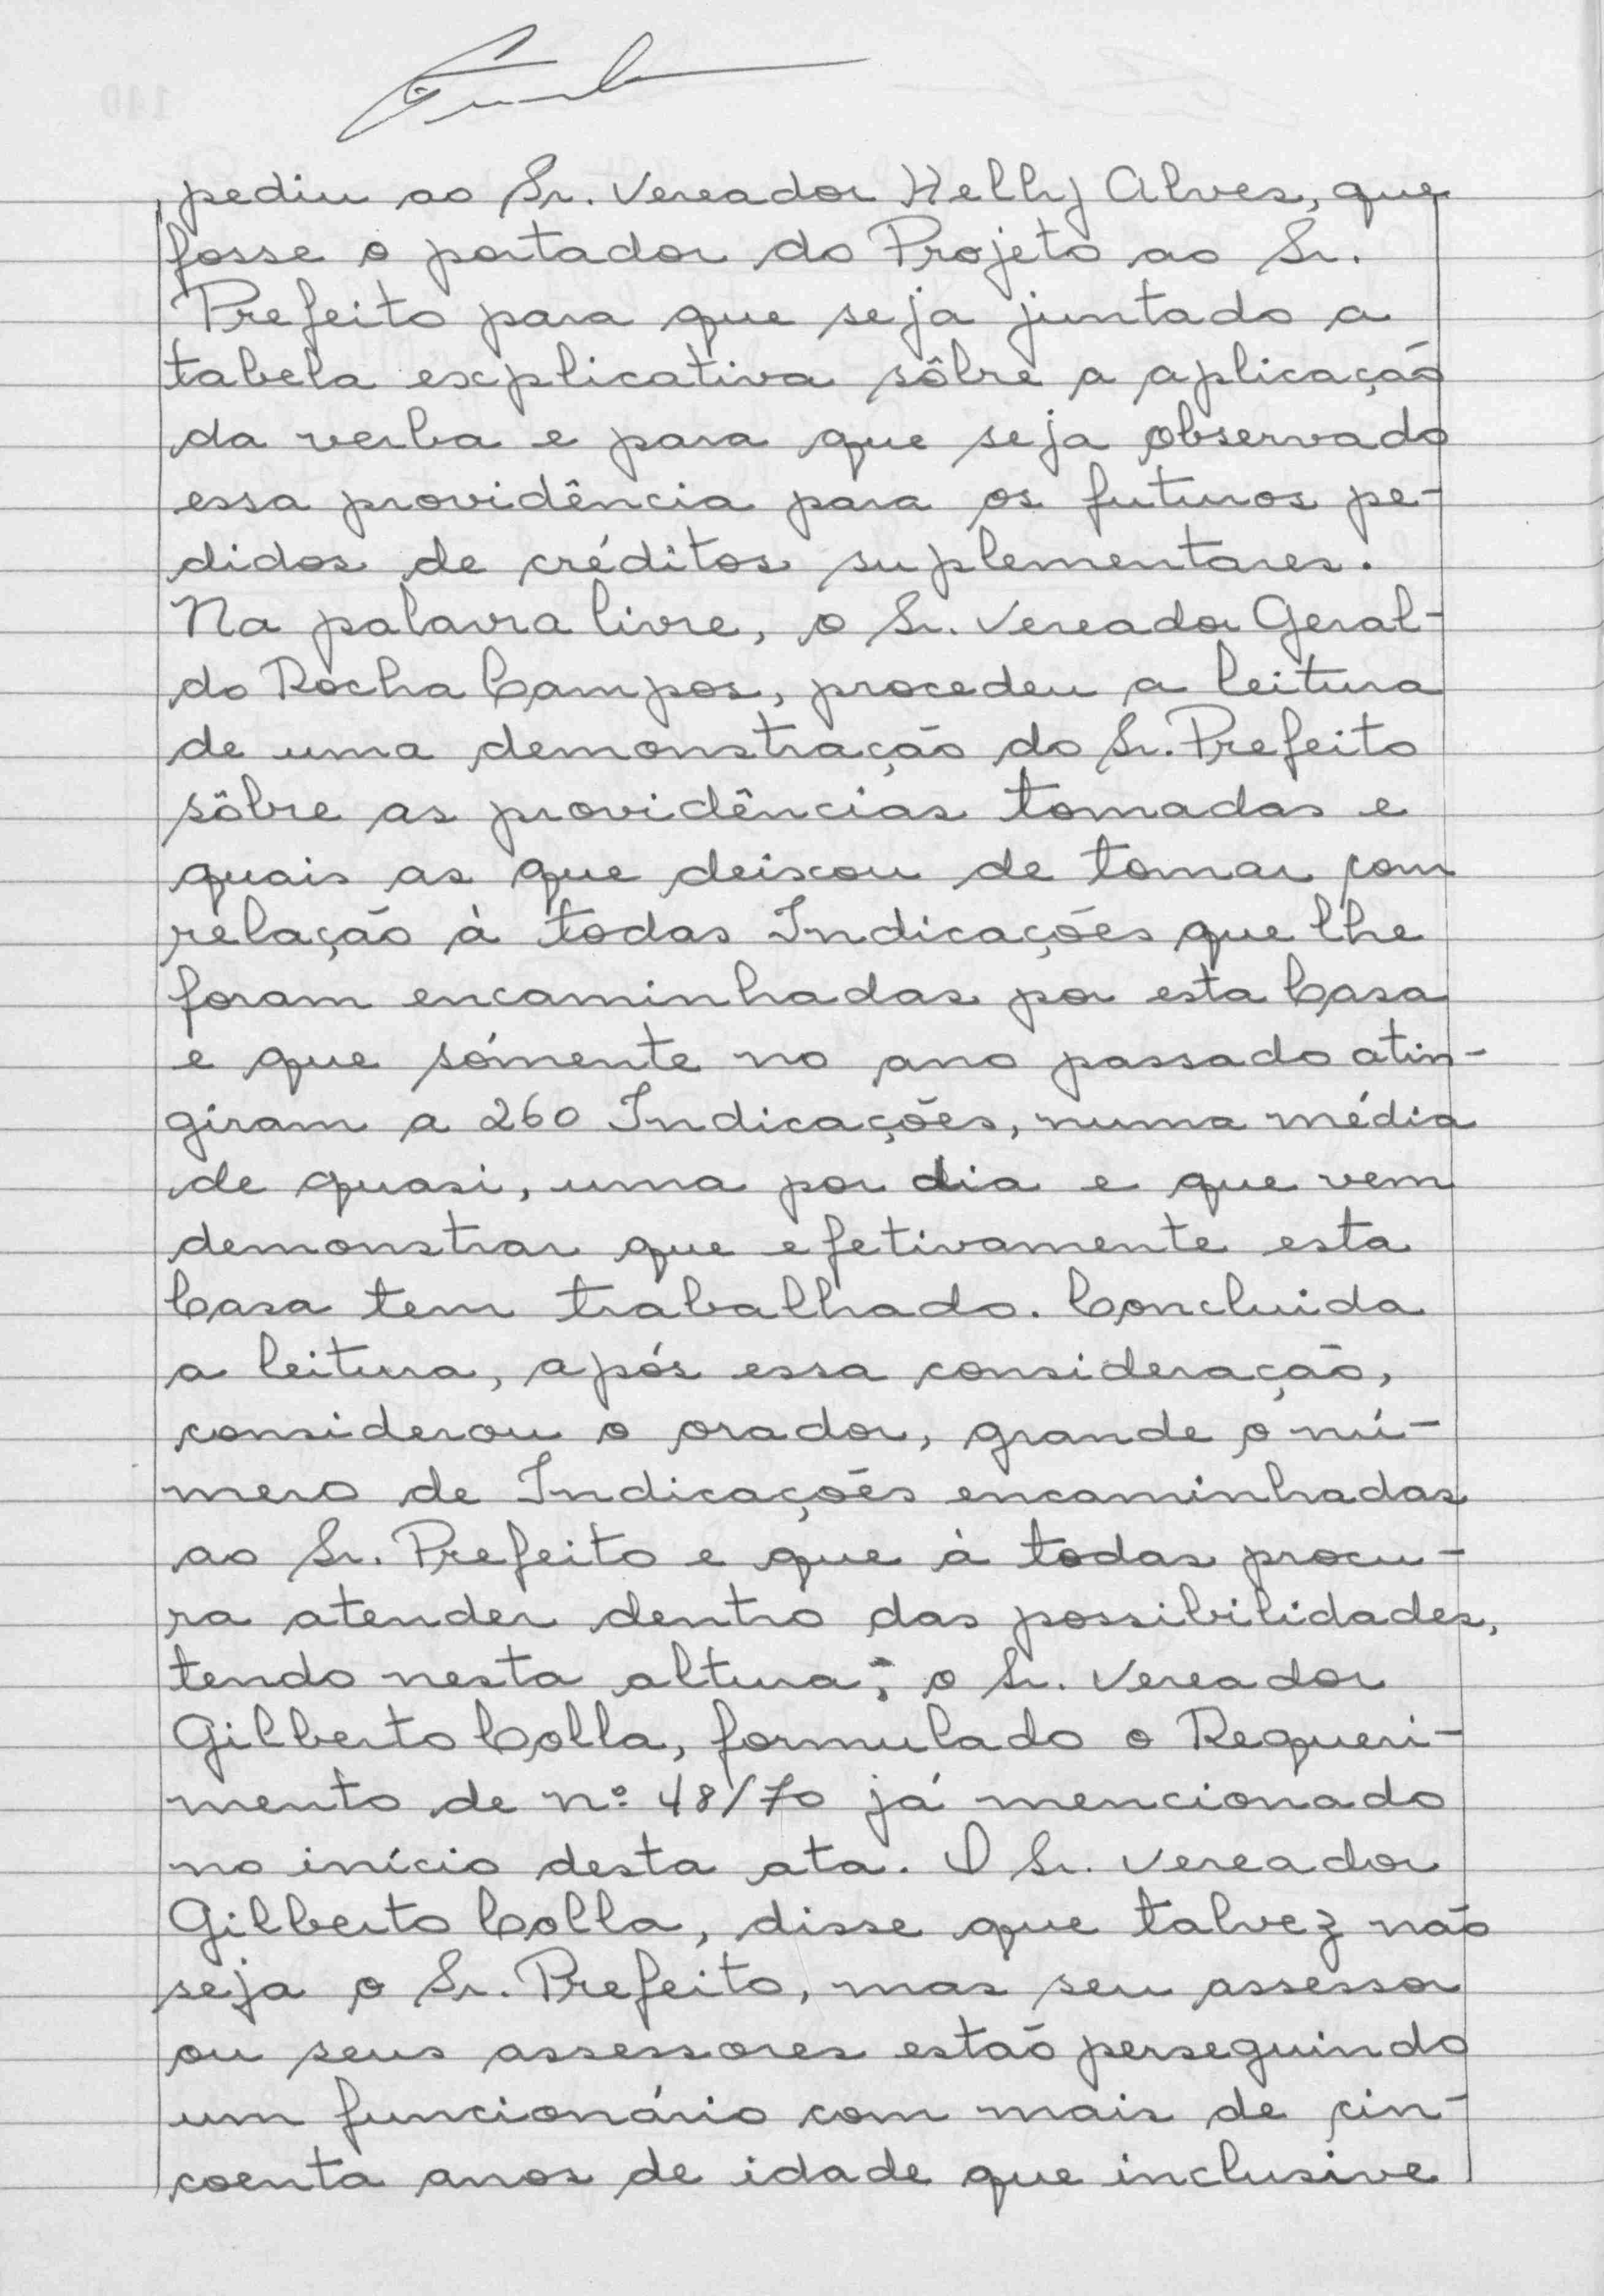 pediu ao Sr. Vereador Helly Alves, que
fosse o portador do Projeto ao Sr.
Prefeito para que seja juntado a
tabela explicativa sôbre a aplicação
da verba e para que seja observado
essa providência para os futuros pe-
didos de créditos suplementares.
Na palavra livre, o Sr. Vereador Geral-
do Rocha Campos, procedeu a leitura
de uma demonstração do Sr. Prefeito
sôbre as providências tomadas e
quais as que deixou de tomar com
relação à todas Indicações que lhe
foram encaminhadas por esta Casa
e que sómente no ano passado atin-
giram a 260 Indicações, numa média
de quasi, uma por dia e que vem
demonstrar que efetivamente esta
Casa tem trabalhado. Concluida
a leitura, após essa consideração,
considerou o orador, grande o nú-
mero de Indicações encaminhadas
ao Sr. Prefeito e que à todas procu-
ra atender dentro das possibilidades,
tendo nesta altura, o Sr. Vereador
Gilberto Colla, formulado o Requeri-
mento de nº 48/70 já mencionado
no início desta ata. O Sr. Vereador
Gilberto Colla, disse que talvez não
seja o Sr. Prefeito, mas seu assessor
ou seus assessores estão perseguindo
um funcionário com mais de cin-
coenta anos de idade que inclusive